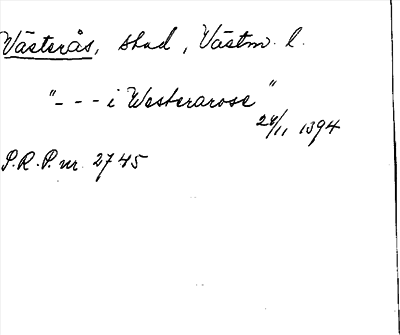 Västerås, stad, Västm. l.
"- - - i Westerarose"
24/11 1394
P.R.P. nr. 2745